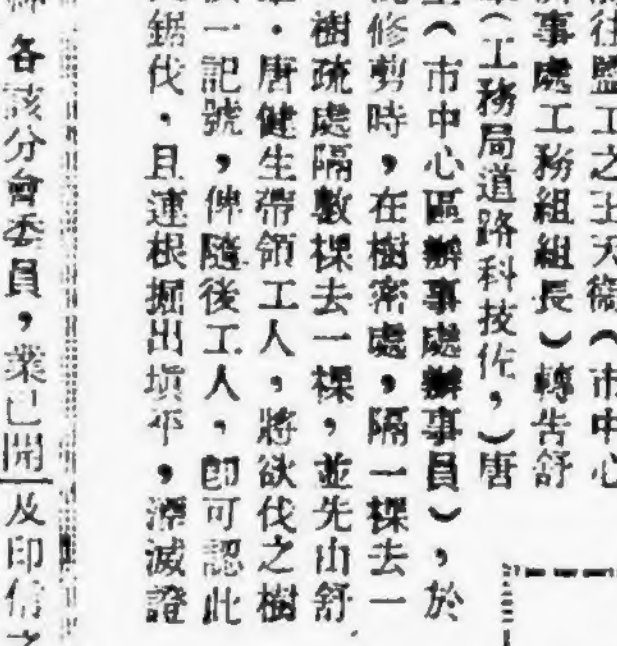 往監工之王天衞（市中心
事處工務組組長）轉告舒
（工務局道路科技佐，）唐
（市中心區辦事處辦事員），於
修剪時，在樹密處，隔一棵去一
樹疏處隔數棵去一棵，並先由舒
・唐健生帶領工人，將欲伐之樹
一記號，俾隨後工人，即可認此
鋸伐，且連根掘出塡平，湮滅證
各該分會委員，業已開
及印信之